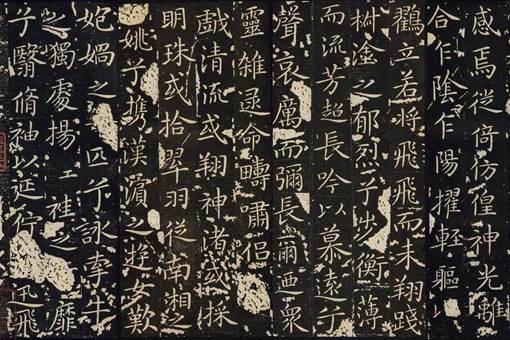 感焉徙倚仿偟神光離
合乍陰乍陽擢輕軀以
鸖立若將飛飛而未翔踐
塗之郁烈兮步衡薄
而流芳超長吟以慕遠兮
聲哀厲而彌長爾迺眾
靈雜遝命疇嘯侶
戲清流或翔神渚或採
明珠或拾翠羽從南湘之
姚兮攜漢濱之遊女歎
妃媧之匹兮詠牽牛
之獨處揚袿之靡
兮翳脩袖以延佇迅飛